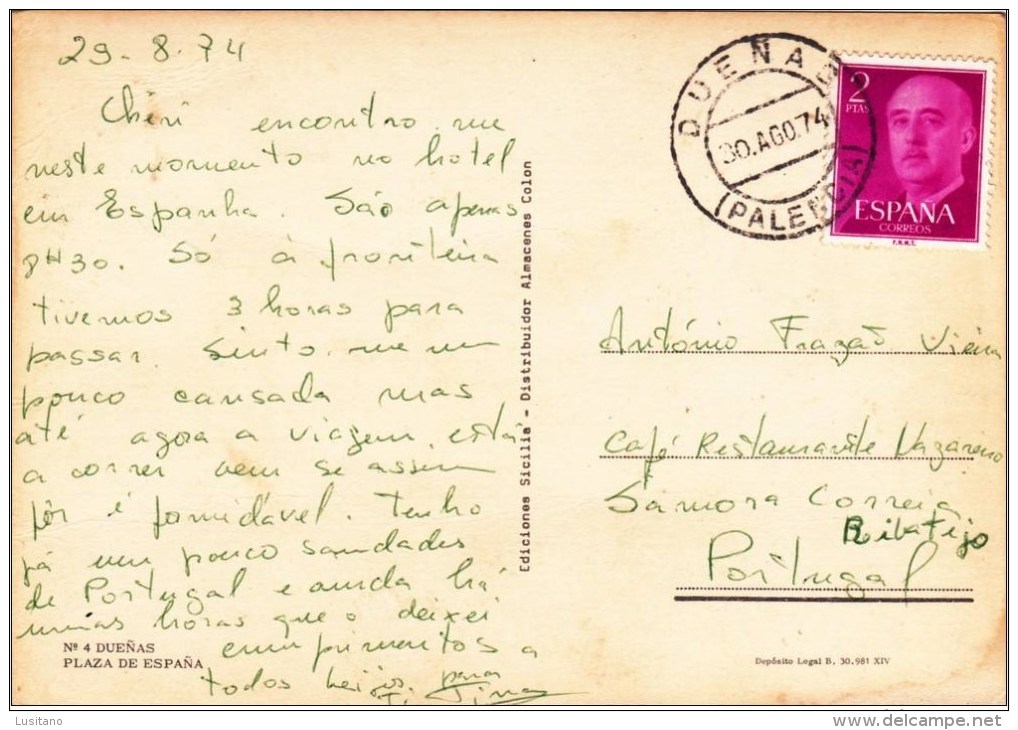 29-8-74
Chéri encontro-me
neste momento no hotel
em Espanha. São apenas
8H30. Só à fronteira
tivemos 3 horas para
passar. Sinto-me um
pouco cansada mas
até agora a viagem está
a correr bem se assim
fôr é formidável. Tenho
já um pouco saudades
de Portugal e ainda há
umas horas que o deixei
cumprimentos a
todos beijos para
Nº 4 DUEÑAS
PLAZA DE ESPAÑA
Ediciones Sicilia - Distribuidor Almacenes Colon
DUEÑAS
30.AGO.74
(PALENCIA)
2
PTAS
ESPAÑA
CORREOS
F.N.M.T.
António Frazão Vieira
Café Restaurante Nazareno
Samora Correia
Ribatejo
Portugal
Depósito Legal B. 30.981 XIV
Lusitano
www.delcampe.net